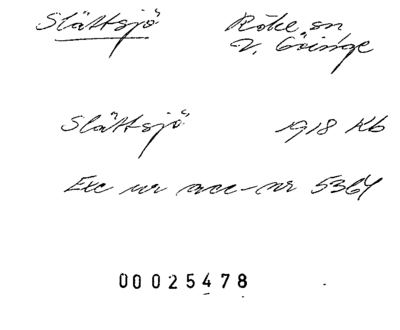 Slättsjö Röke sn
V. Göinge
Slättsjö 1918 Kb
Exc ur acc-nr 5364
00025478